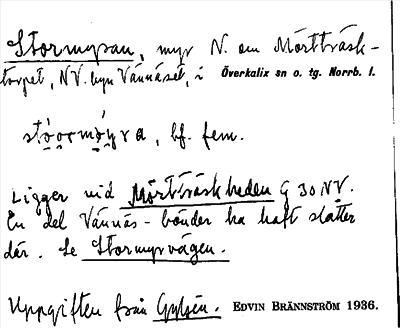 Stormyran, myr N. om Mörtträsk-
torpet, NV. byn Vännäset, i Överkalix sn o. tg. Norrb. l.
stọ́ọrmọ̀yra, bf. fem.
Ligger vid Mörtträskheden G 30 NV.
En del Vännäs-bönder ha haft slåtter
där. Se Stormyrvägen.
Uppgiften från EDVIN BRÄNNSTRÖM 1936.